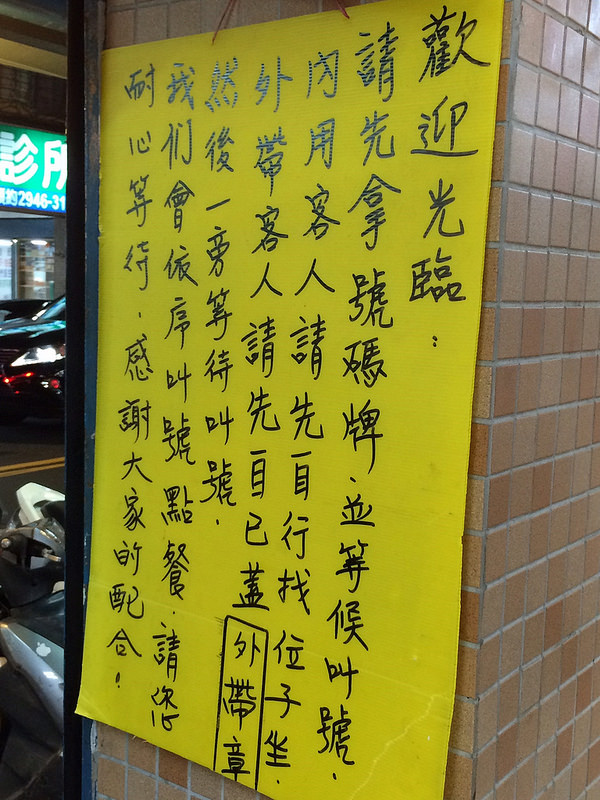 歡迎光臨：
請先拿號碼牌、並等候叫號、
內用客人請先自行找位子坐、
外帶客人請先自己蓋外帶章
然後一旁等待叫號、
我们會依序叫號點餐、請您
耐心等待、感謝大家的配合！
診所
2946-31